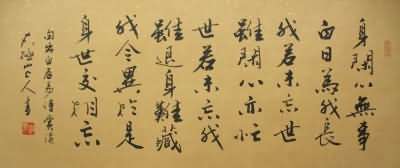 身閑心無事
白日為我長
我若未忘世
雖閑心亦忙
世若未忘我
雖退身難藏
我今異於是
身世交相忘
白居易詩
山人書